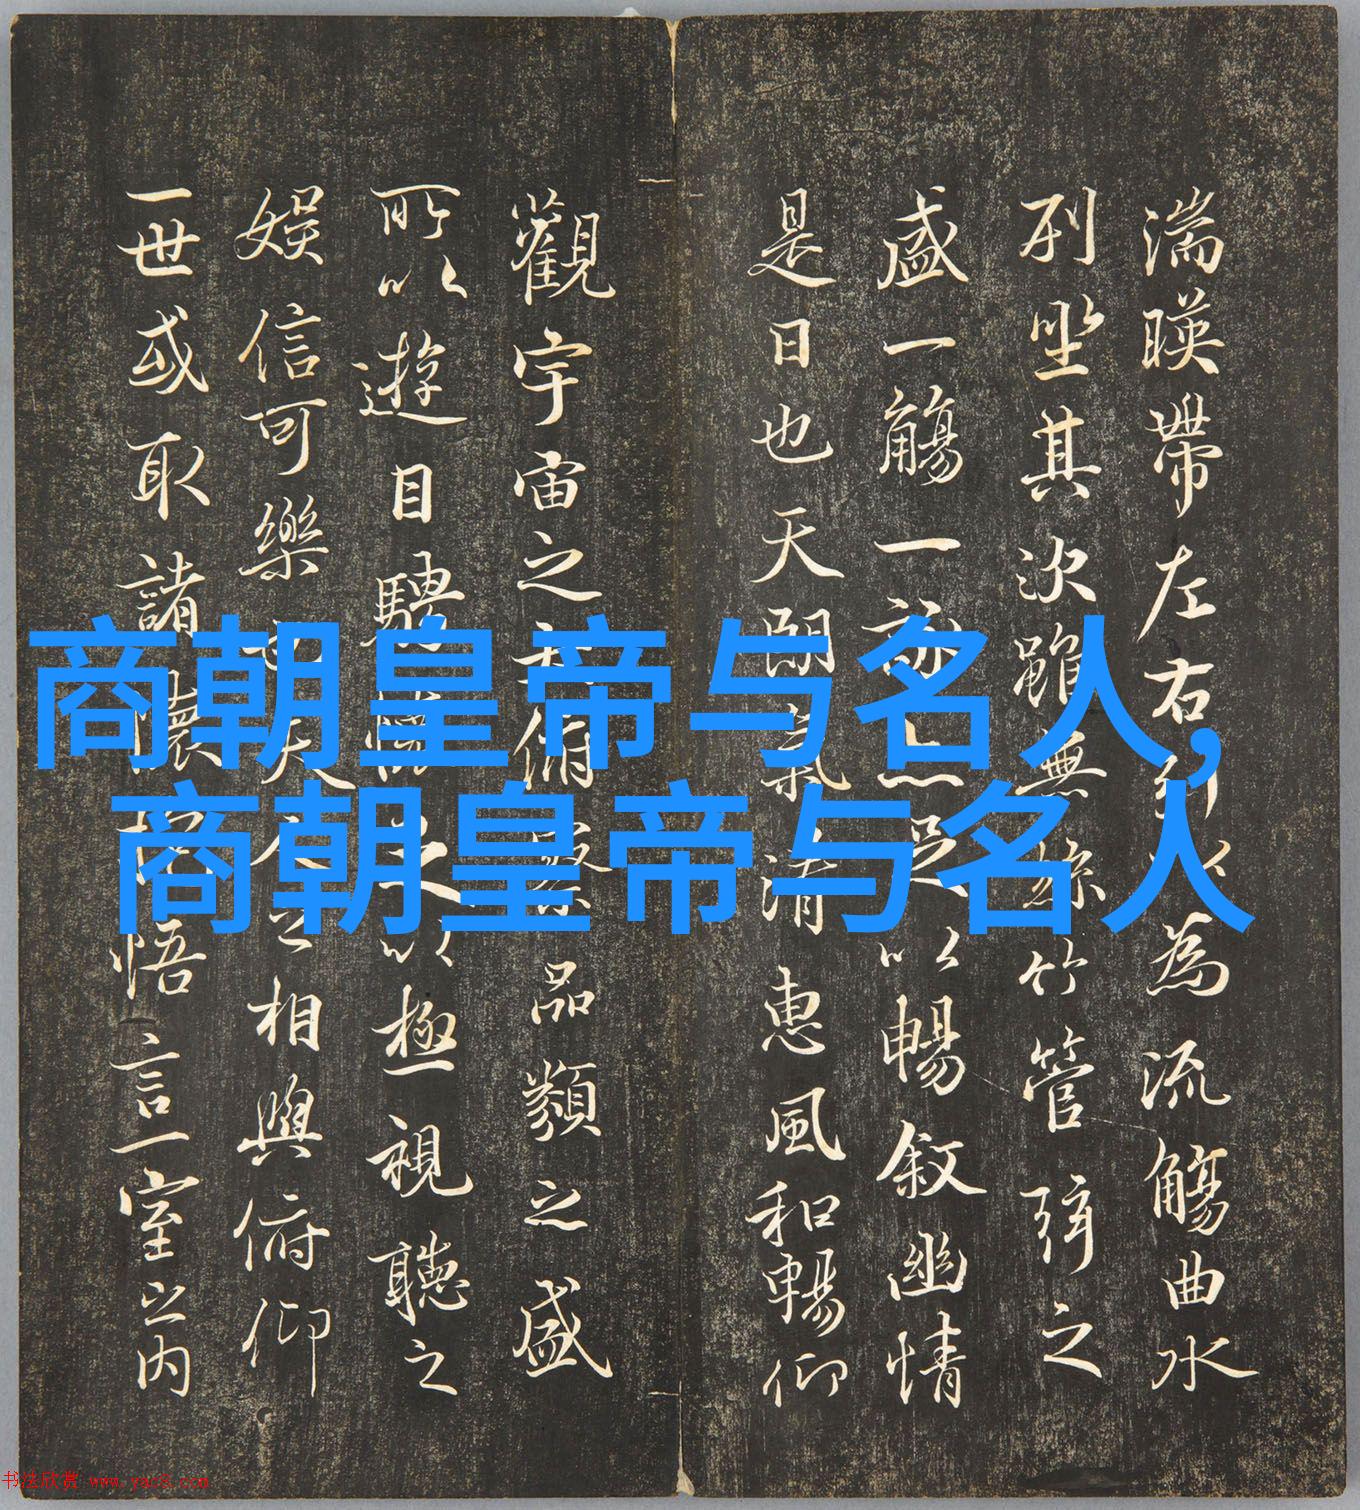 湍暎帶左右引以為流觴曲水
列坐其次雖無絲竹管弦之
盛一觴一詠亦足以暢叙幽情
是日也天朗氣清惠風和暢仰
觀宇宙之大俯察品類之盛
所以遊目騁懷足以極視聽之
娛信可樂也夫人之相與俯仰
一世或取諸懷抱悟言一室之內
商朝皇帝与名人,
商朝皇帝与名人
书法欣赏 www.yac8.com